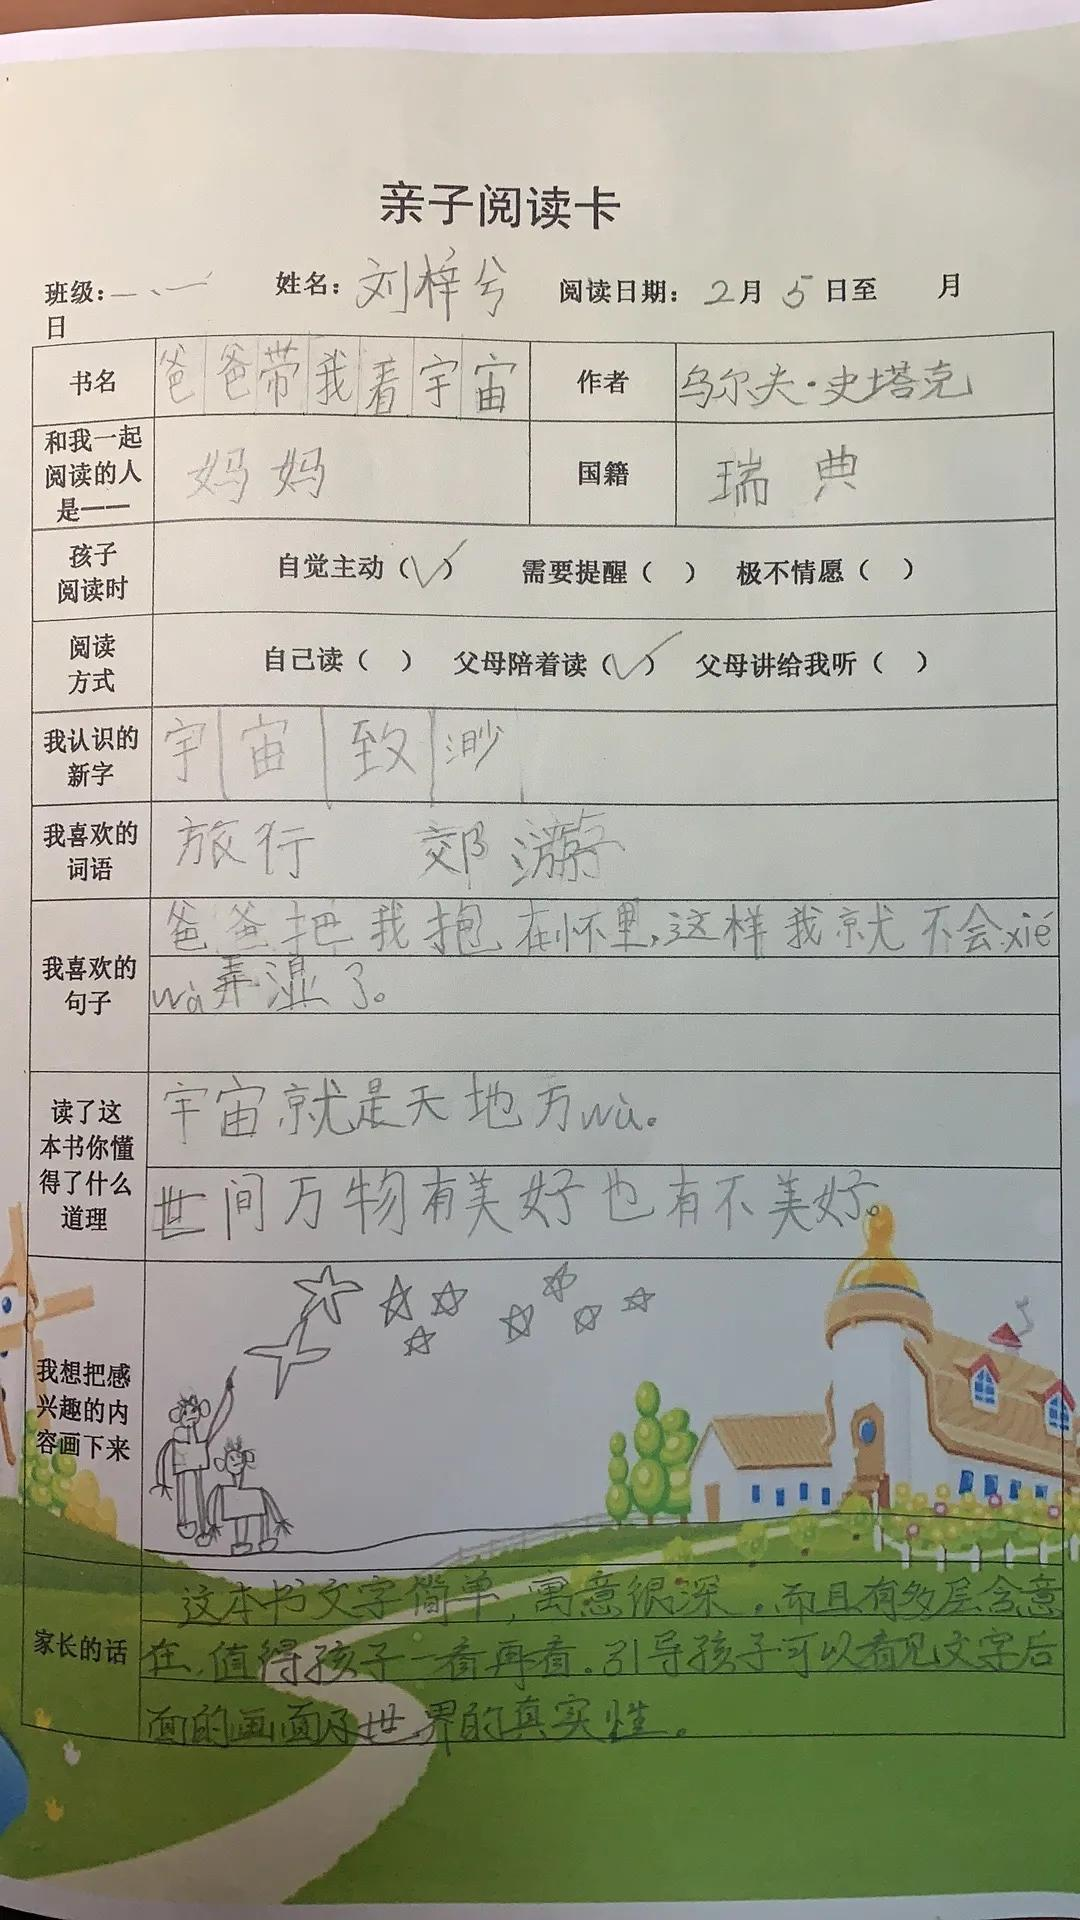 亲子阅读卡
班级：一、一 姓名：刘梓兮 阅读日期： 2月 5 日至 月
日
书名 爸爸带我看宇宙 作者 乌尔夫·史塔克
和我一起
阅读的人
是一一 妈妈 国籍 瑞典
孩子
阅读时 自觉主动（✓） 需要提醒（ ） 极不情愿（ ）
阅读
方式 自己读（ ） 父母陪着读（✓） 父母讲给我听（ ）
我认识的
新字 宇 宙 致 渺
我喜欢的
词语 旅行 郊游
我喜欢的
句子
爸爸把我抱在怀里，这样我就不会xié
wà弄湿了。
读了这
本书你懂
得了什么
道理
宇宙就是天地万wù。
世间万物有美好也有不美好。
我想把感
兴趣的内
容画下来
家长的话
这本书文字简单，寓意很深，而且有多层含意
在，值得孩子一看再看。引导孩子可以看见文字后
面的画面及世界的真实性。